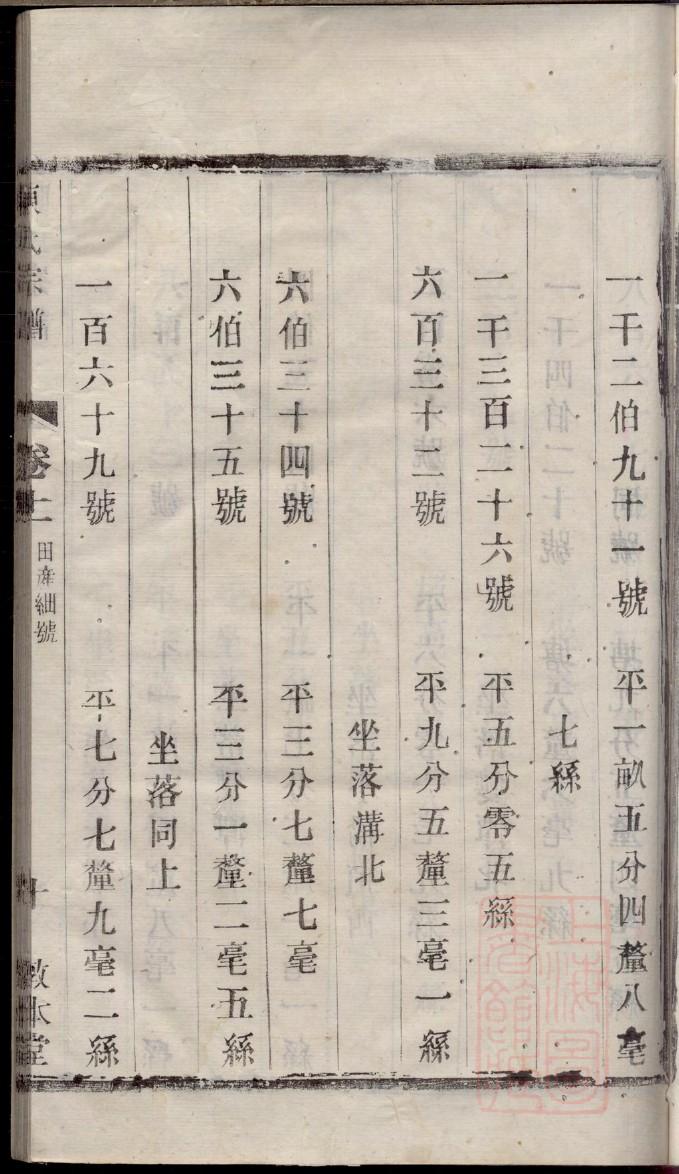 一千二伯九十一號　平一畝五分四釐八毫
七絲
一千三百二十六號　平五分零五絲
六百三十二號　平九分五釐三毫一絲
坐落溝北
六伯三十四號　平三分七釐七毫
六伯三十五號　平三分一釐二毫五絲
坐落同上
一百六十九號　平七分七釐九毫二絲
陳氏宗譜　卷上　田產細號　十　敦本堂